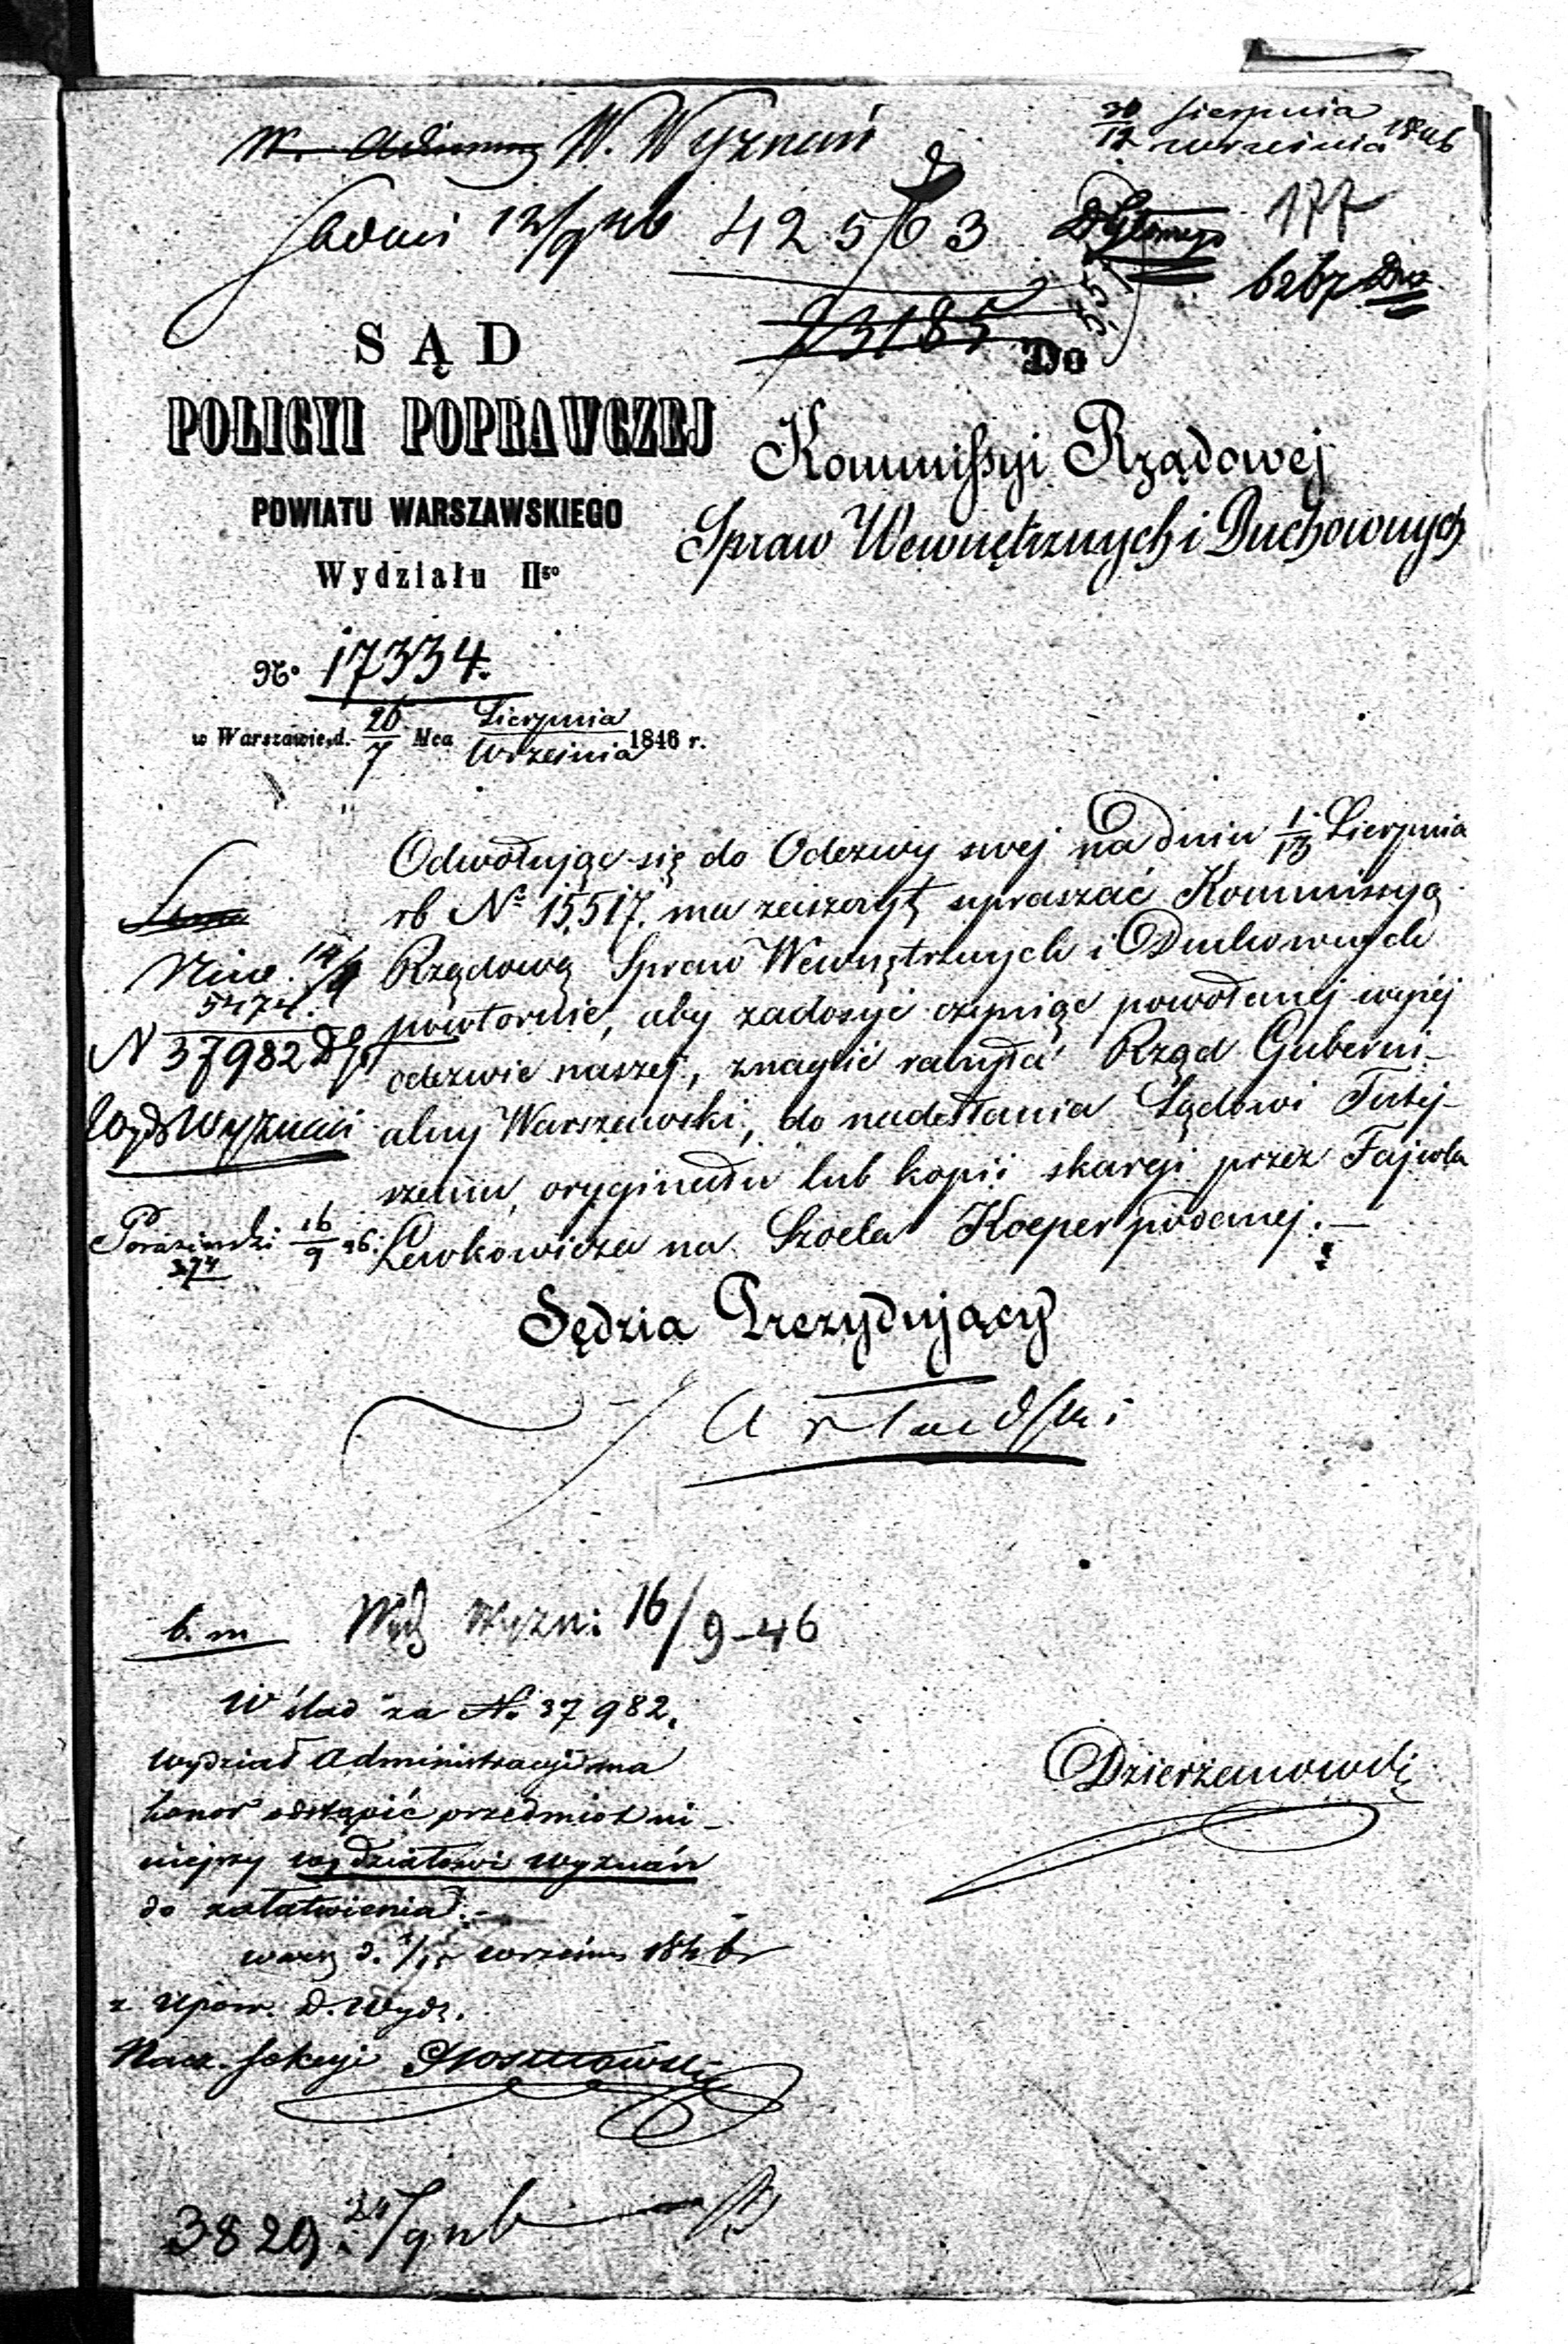 W. Wyznań
30/12 Sierpnia/września 1846
42563
177
6267
23185
SĄD
POLICYI POPRAWCZEJ
POWIATU WARSZAWSKIEGO
Wydziału IIgo
Do
Kommissyi Rządowej
Spraw Wewnętrznych i Duchownych
No 17334.
w Warszawie, d. 26/7 Mca Sierpnia/Września 1846 r.
Odwołując się do Odezwy swej na dniu 1/13 Sierpnia
rb No 15,517. ma zaszczyt upraszać Kommissyą
Rządową Spraw Wewnętrznych i Duchownych
powtórnie, aby zadosyć czyniąc powołanej wyżej
odezwie naszej, znaglić raczyła Rząd Guberni-
alny Warszawski, do nadesłania Sądowi Tutej-
szemu, oryginału lub kopii skargi przez Fajwla
Lewkowicza na Szoela Koeper podanej.
5474.
N 37982
Wyd Wyznań
16/9 46.
374
Sędzia Prezydujący
b. m
Wyd Wyzn: 16/9-46
W ślad za No 37982.
Wydział Administracyi ma
honor odstąpić przedmiot ni-
niejszy wydziałowi wyznań
do załatwienia.
września 1846 r
z upow. D. Wydz.
Nacz. Sekcyi
Dzierżanowski
3829.